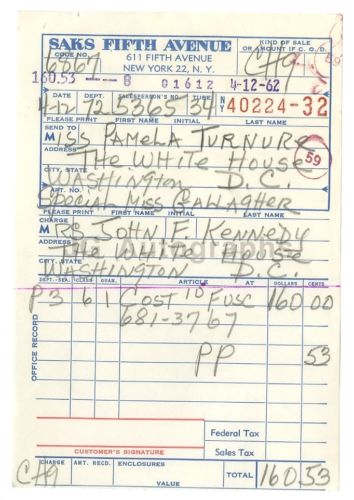 SAKS FIFTH AVENUE
611 FIFTH AVENUE
NEW YORK 22, N. Y.
CODE NO.
KIND OF SALE
OR AMOUNT IF C. O. D.
6867
CH9
59
160.53 01612 4-12-62
DATE DEPT. SALESPERSON'S NO. TIME
4-12 72 NY 40224-32
PLEASE PRINT FIRST NAME INITIAL LAST NAME
SEND TO
MISS PAMELA TURNURE
ADDRESS
THE WHITE HOUSE
59
CITY, STATE
WASHINGTON D.C.
APT. NO.
SPECIAL MISS GALLAGHER
PLEASE PRINT FIRST NAME INITIAL LAST NAME
CHARGE
MRS JOHN F. KENNEDY
Autographs
ADDRESS
THE WHITE HOUSE
CITY, STATE
WASHINGTON D.C.
DEPT.-SER. CLASS QUAN. ARTICLE AT DOLLARS CENTS
P3 61 COST 10 FUSC 160 00
681-3767
PP 53
OFFICE RECORD
Federal Tax
CUSTOMER'S SIGNATURE
Sales Tax
CHARGE AMT. RECD. ENCLOSURES
VALUE
CH9
TOTAL 160 53